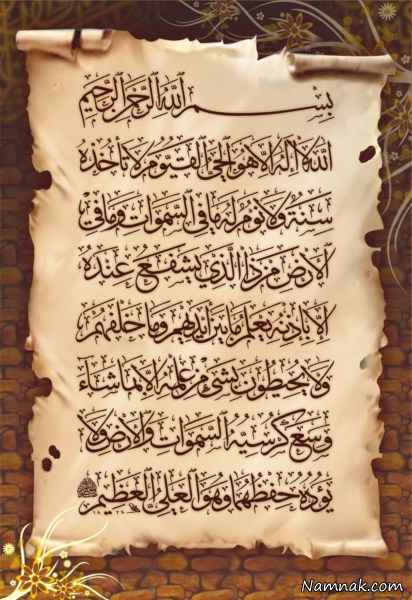 بِسْمِ اللهِ الرَّحْمٰنِ الرَّحِيمِ
اَللهُ لَا إِلٰهَ إِلَّا هُوَ الْحَيُّ الْقَيُّومُ لَا تَأْخُذُهُ
سِنَةٌ وَلَا نَوْمٌ لَهُ مَا فِي السَّمٰوَاتِ وَمَا فِي
الْأَرْضِ مَنْ ذَا الَّذِي يَشْفَعُ عِنْدَهُ
إِلَّا بِإِذْنِهِ يَعْلَمُ مَا بَيْنَ أَيْدِيهِمْ وَمَا خَلْفَهُمْ
وَلَا يُحِيطُونَ بِشَيْءٍ مِنْ عِلْمِهِ إِلَّا بِمَا شَاءَ
وَسِعَ كُرْسِيُّهُ السَّمٰوَاتِ وَالْأَرْضَ وَلَا
يَؤُدُهُ حِفْظُهُمَا وَهُوَ الْعَلِيُّ الْعَظِيمُ
Namnak.com